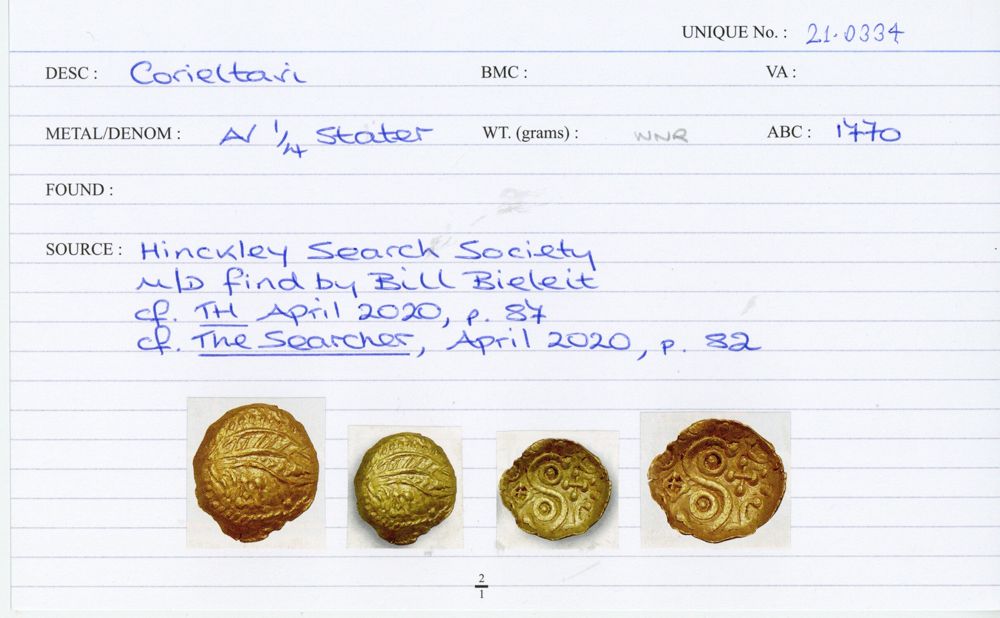 UNIQUE No. : 21.0334
DESC : Corieltavi BMC : VA :
METAL/DENOM : AV 1/4 Stater WT. (grams) : WNR ABC : 1770
FOUND :
SOURCE : Hinckley Search Society
M/D find by Bill Bieleit
cf. TH April 2020, p. 87
cf. The Searcher, April 2020, p. 82
2/1